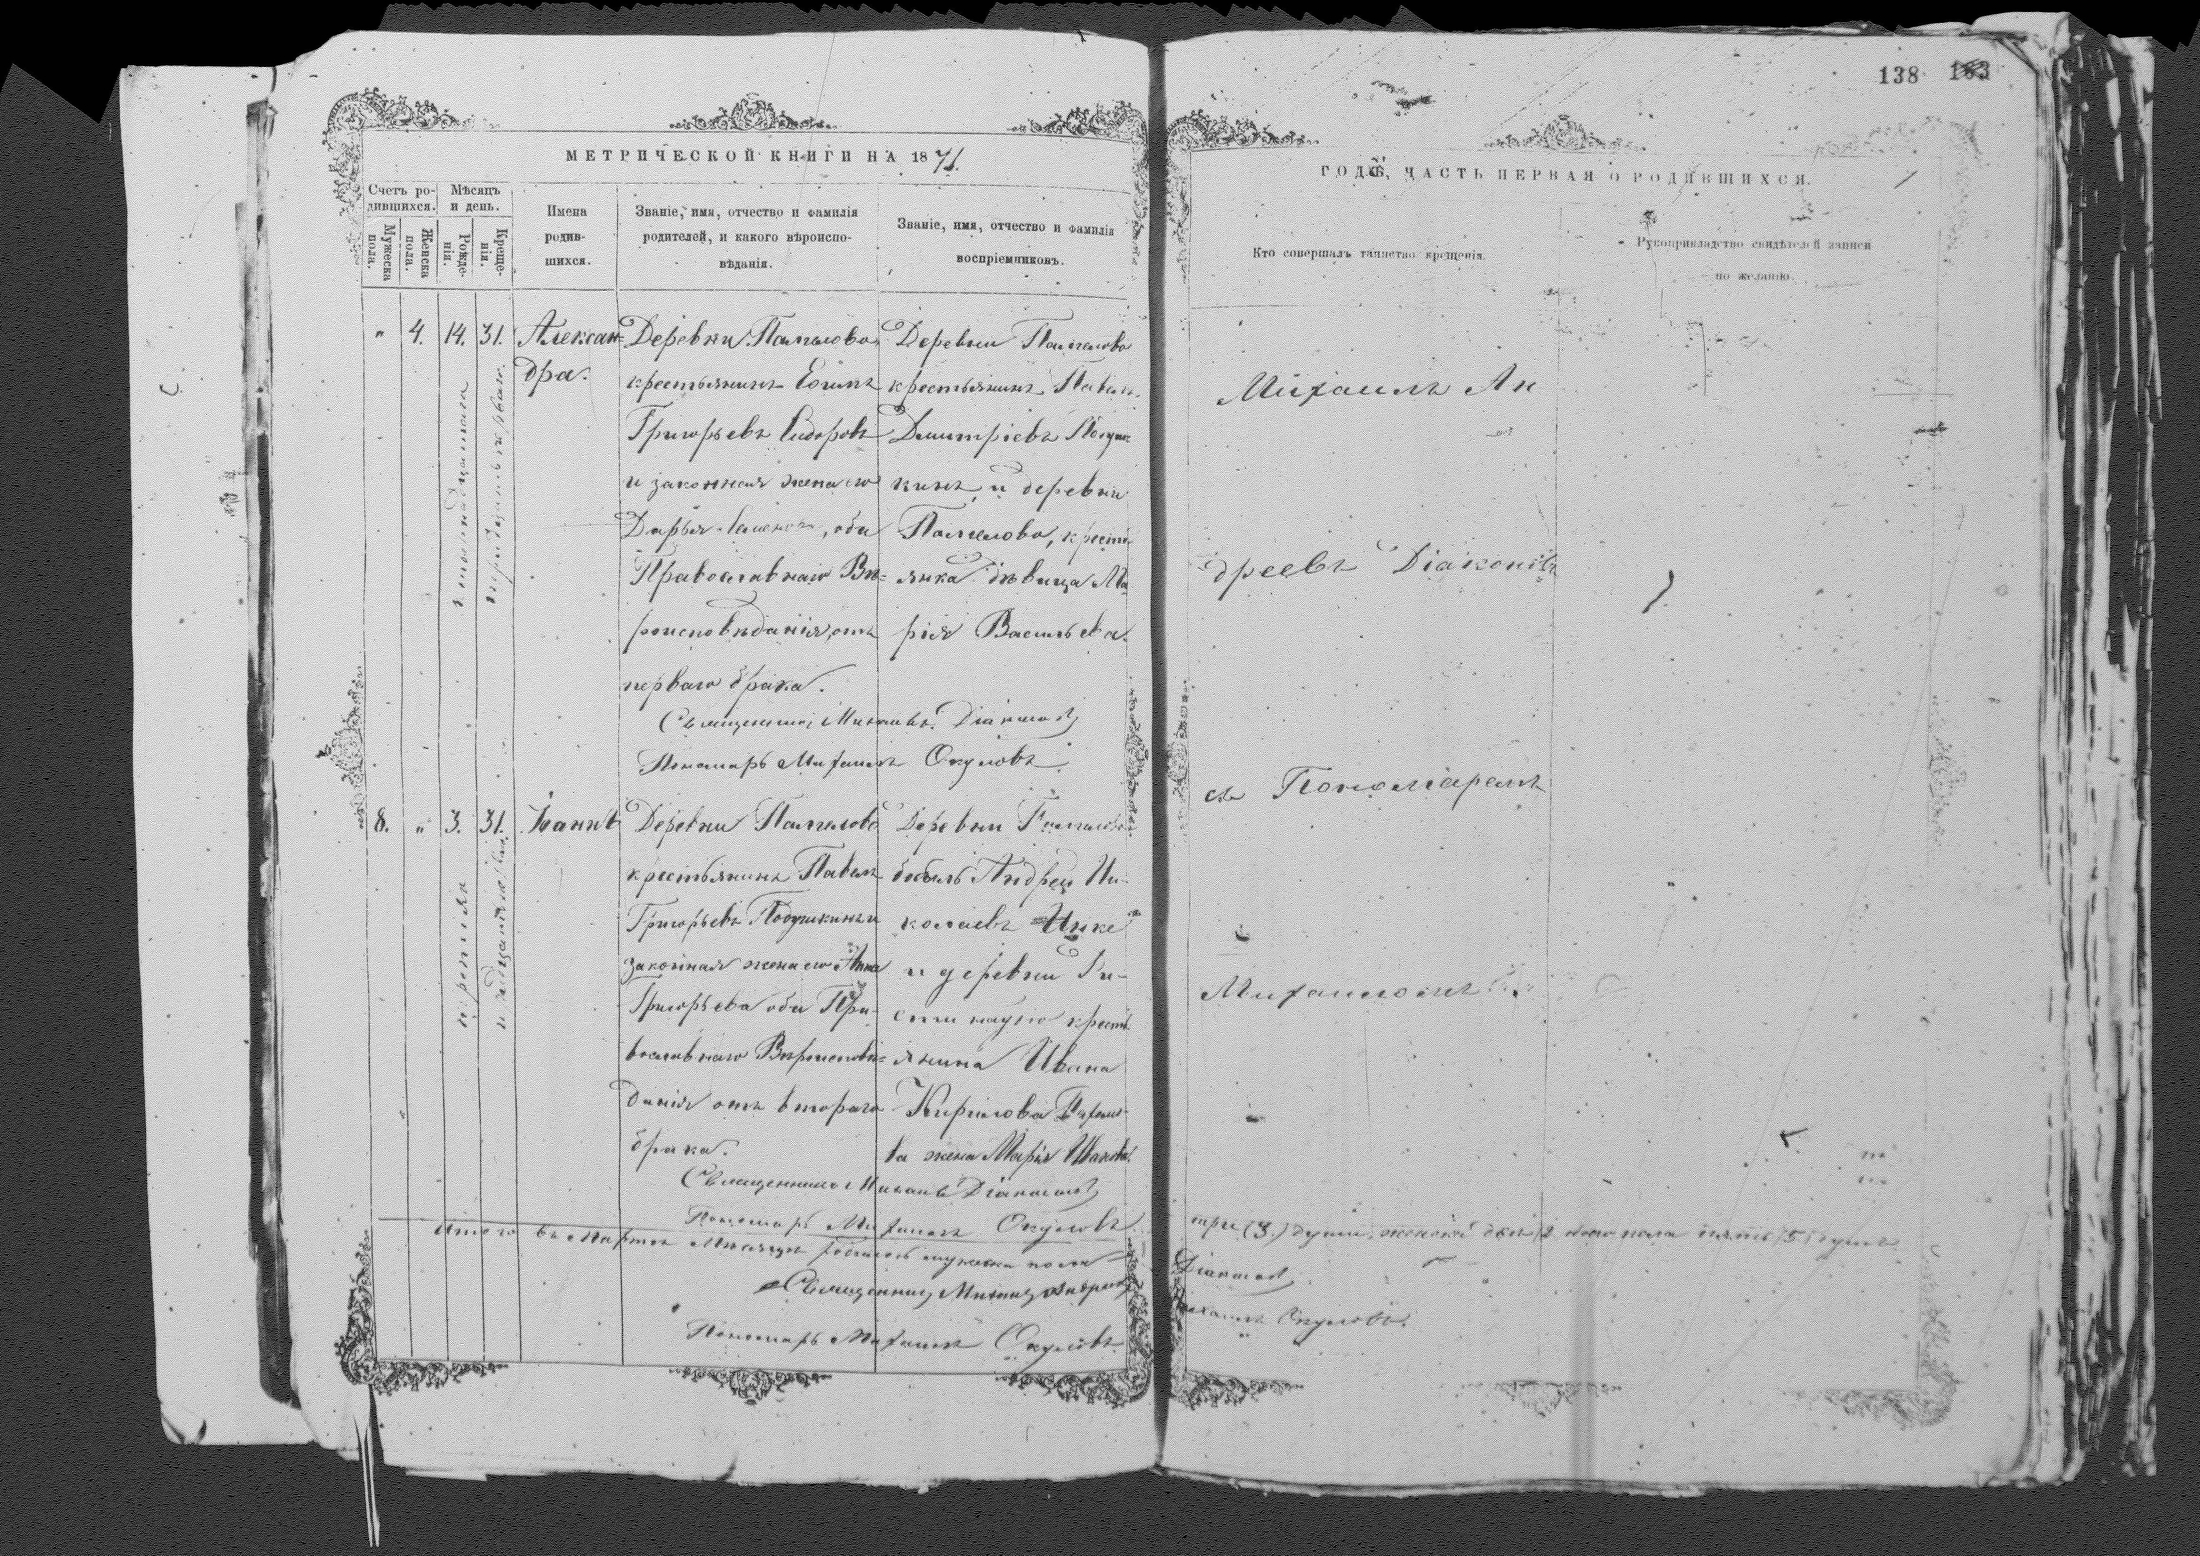 138 183
МЕТРИЧЕСКОЙ КНИГИ НА 1871.
ГОДЪ, ЧАСТЬ ПЕРВАЯ О РОДИВШИХСЯ.
Счетъ ро-
дившихся.
Мужеска
пола.
Женска
пола.
Мѣсяцъ
и день.
Рожде-
нія.
Креще-
нія.
Имена
родив-
шихся.
Званіе, имя, отчество и фамилія
родителей, и какого вѣроиспо-
вѣданія.
Званіе, имя, отчество и фамилія
воспріемниковъ.
Кто совершалъ таинство крещенія.
Рукоприкладство свидѣтелей записи
по желанію.
" 4. 14. 31.
Алексан-
дра.
Деревни
крестьянинъ
Григорьевъ Сидоровъ
и законная жена его
Дарья обa
Православнаго Вѣ-
роисповѣданія, отъ
перваго брака.
Священникъ Михаилъ Діаконовъ
Пономарь Михаилъ Окуловъ.
Деревни
крестьянинъ Павелъ
Димитріевъ
кинъ и деревни
крестъ-
янка дѣвица Ма
рія Васильева.
Михаилъ Ан
дреевъ Діаконовъ
съ Пономаремъ
Михаиломъ
8. " 3. 31.
третья
Іоаннъ
Деревни
крестьянинъ Павелъ
Григорьевъ Подушкинъ и
законная жена его Анна
Григорьева оба Пра-
вославнаго Вѣроисповѣ-
данія отъ втораго
брака.
Священникъ Михаилъ Діаконовъ
Пономарь Михаилъ Окуловъ.
Деревни
бобыль Андрей Ни-
колаевъ
и деревни
крестъ
янина Ивана
Кирилова
ва жена Марья
Итого въ Мартѣ Мѣсяцѣ родилось мужеска пола
три (3) души, женска двѣ 2 обоего пола пять (5) душъ
Священникъ Михаилъ Андреевъ
Діаконовъ
Пономарь Михаилъ Окуловъ
Михаилъ Окуловъ.